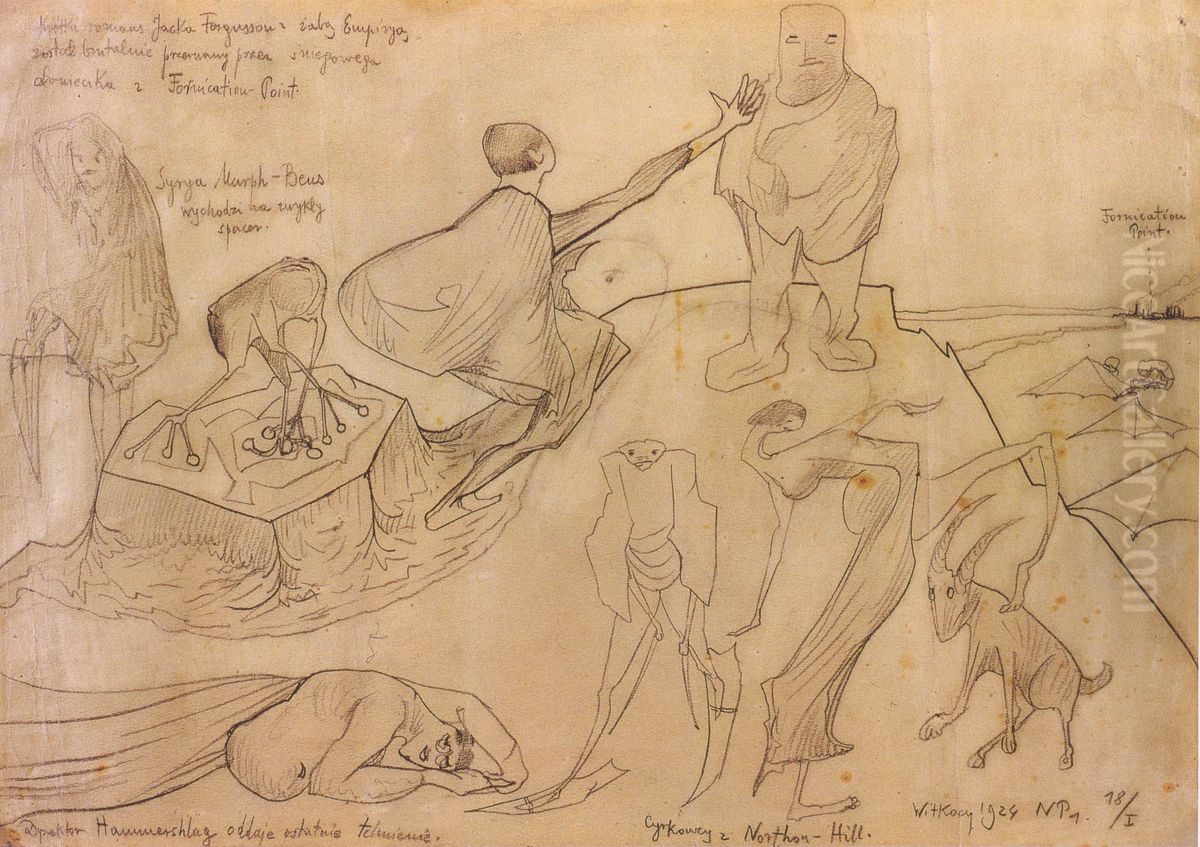 Krótki romans Jacka Fergussona z żabą Empirją
został brutalnie przerwany przez śniegowego
człowieka z Fornication-Point.
Syrya Murph-Beus
wychodzi na zwykły
spacer.
Fornication
Point.
Dyrektor Hammershlag oddaje ostatnie tchnienie.
Cyrkowcy z Northon-Hill.
Witkacy 1924 NP1.
18/I
NiceArtGallery.com